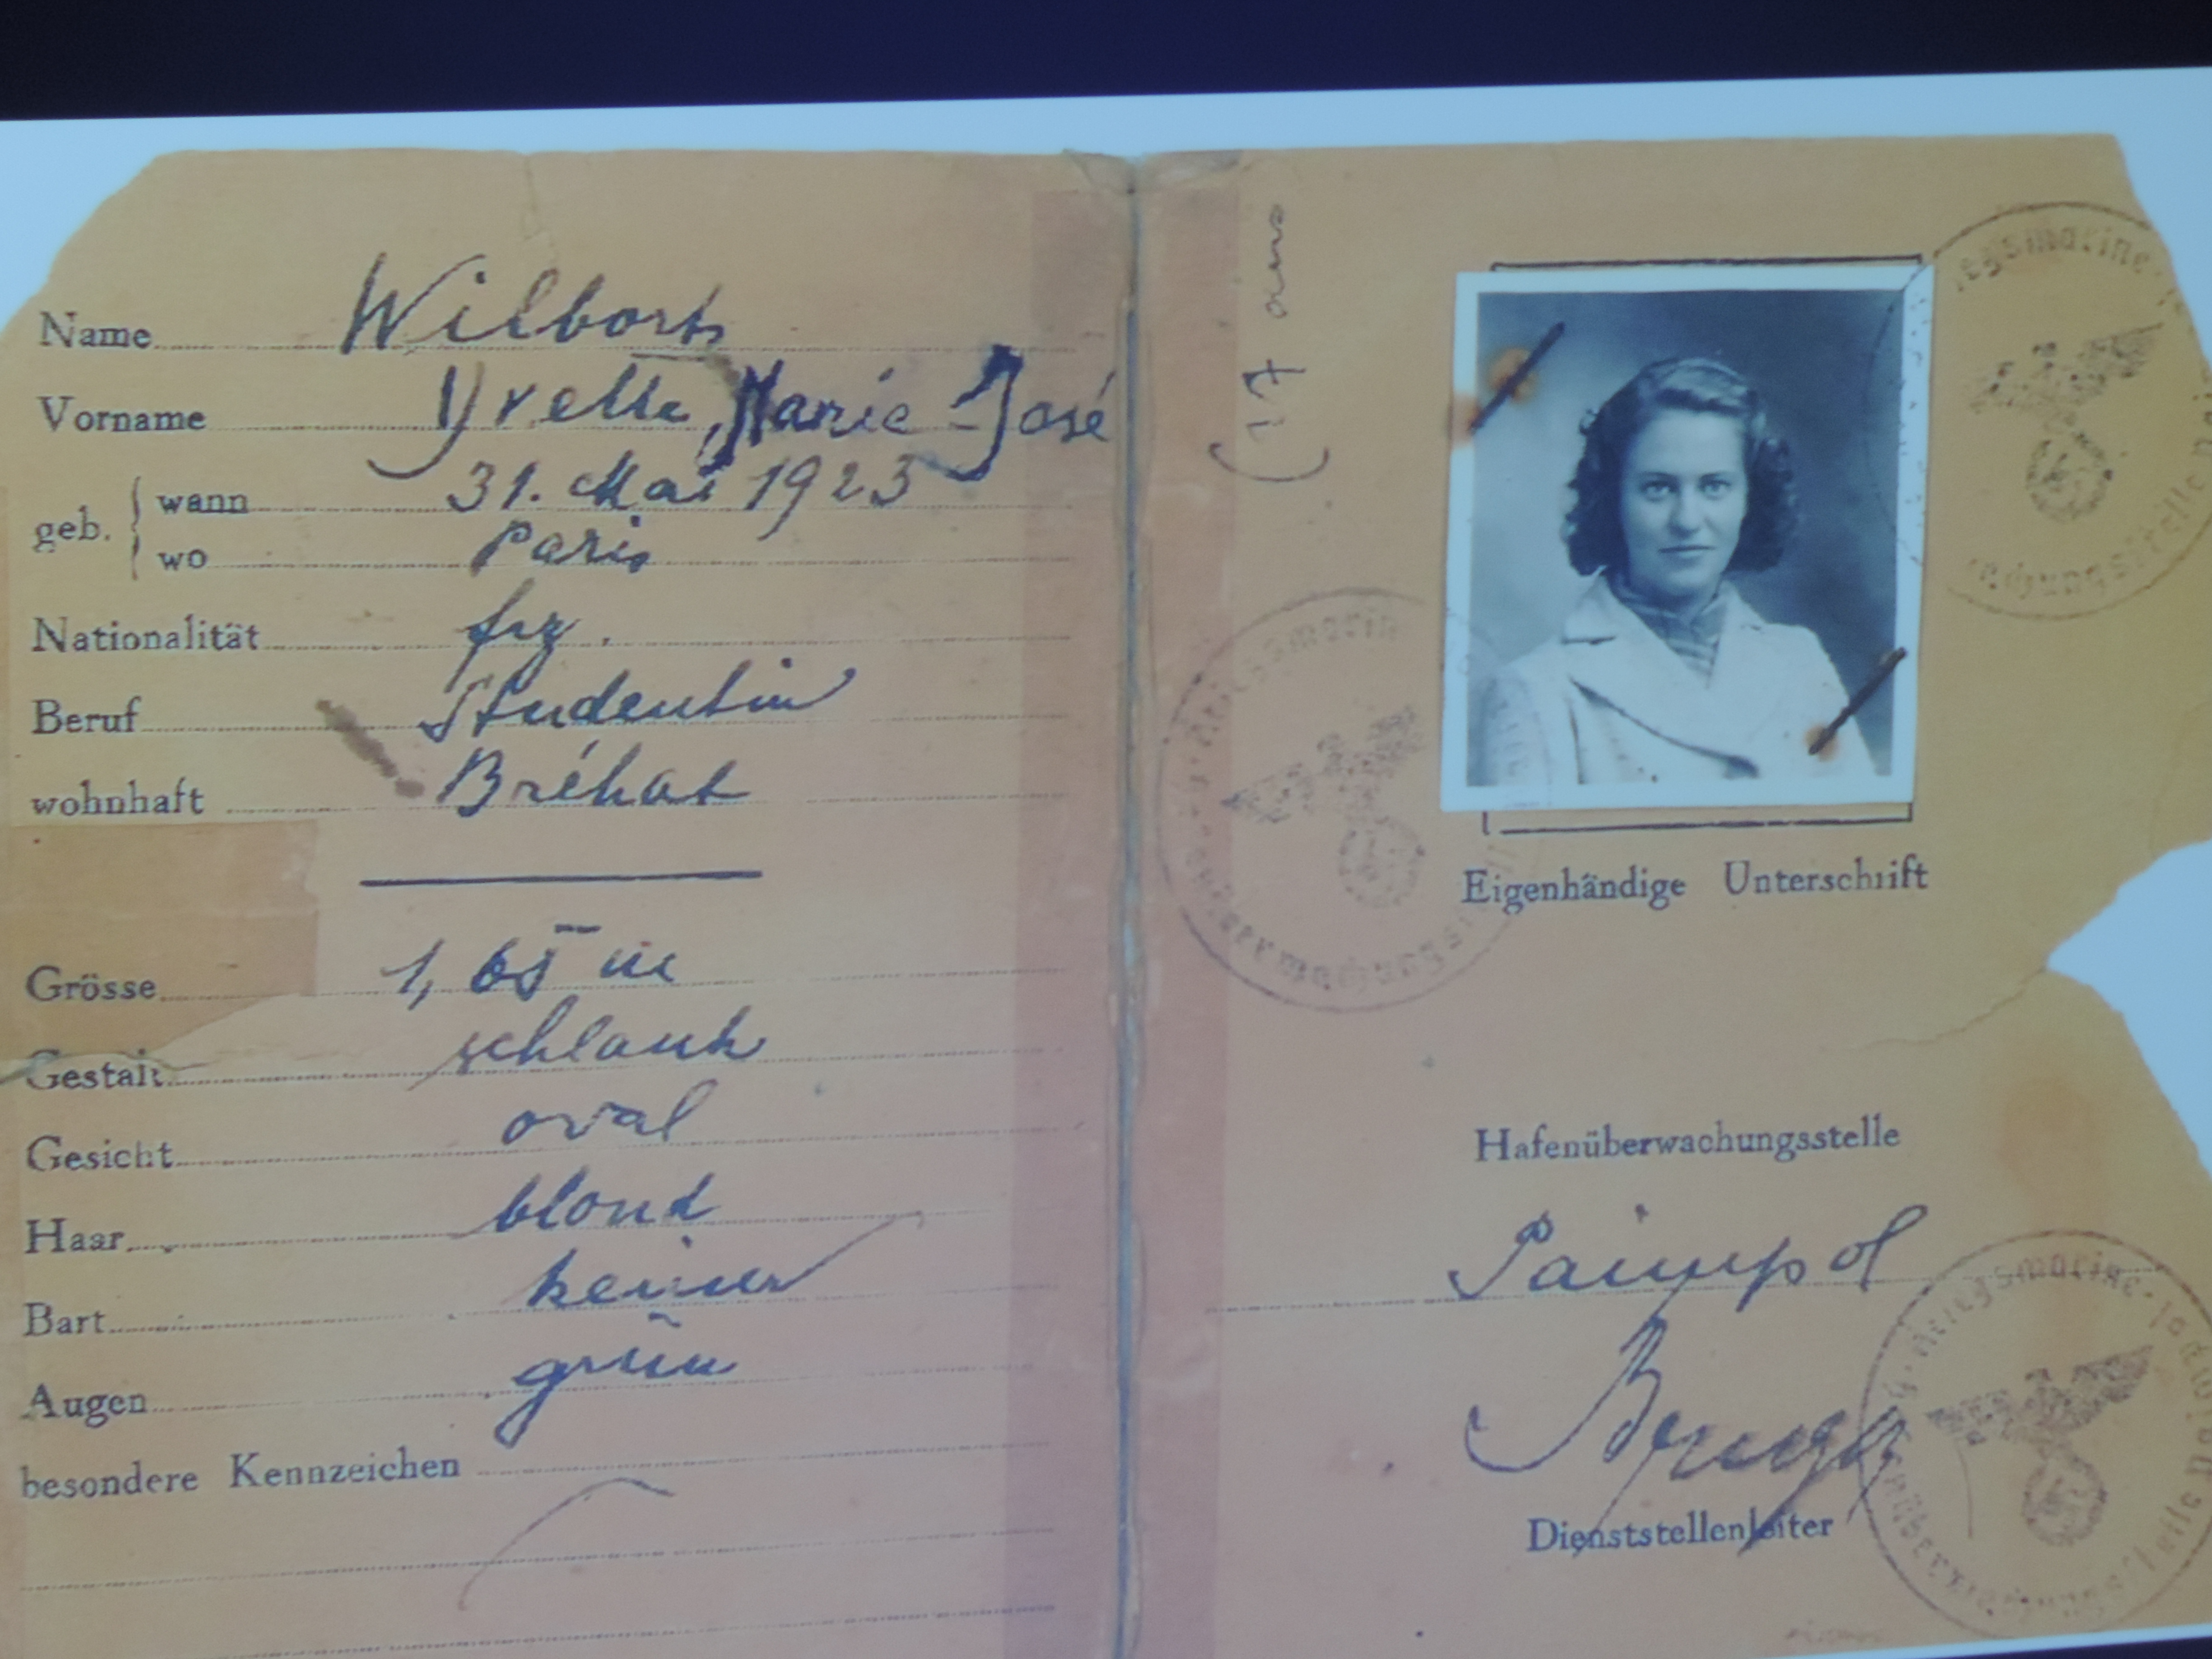 Name Wilborts
Vorname Yvette, Marie-José
geb. wann 31. Mai 1923
wo Paris
Nationalität frz.
Beruf Studentin
wohnhaft Bréhat
Grösse 1,65 m
Gestalt schlank
Gesicht oval
Haar blond
Bart keiner
Augen grün
besondere Kennzeichen
(17 ans
Eigenhändige Unterschrift
Hafenüberwachungsstelle
Paimpol
Dienststellenleiter